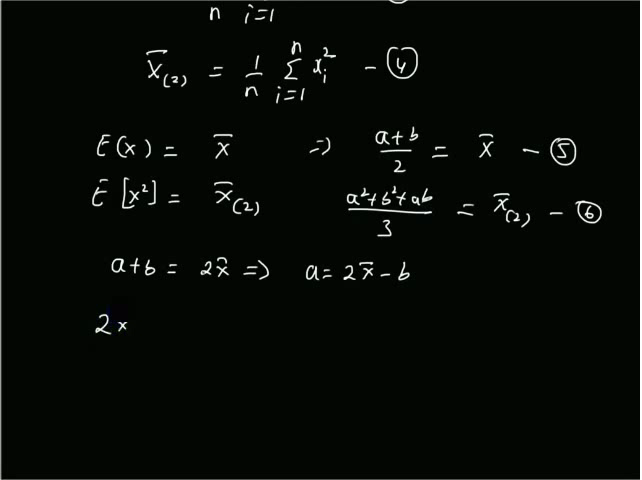 n i=1
x̄₍₂₎ = 1/n Σ(i=1 to n) xᵢ² - ④
E(x) = x̄ ⇒ (a+b)/2 = x̄ - ⑤
E[x²] = x̄₍₂₎ (a²+b²+ab)/3 = x̄₍₂₎ - ⑥
a+b = 2x̄ ⇒ a = 2x̄ - b
2x